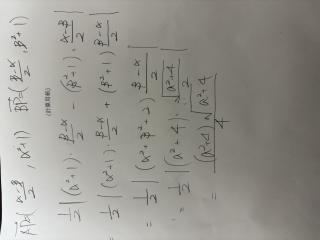 AP=(α-β/2, α²+1) BP=(β-α/2, β²+1)
(計算用紙)
1/2|(α²+1)·β-α/2 - (β²+1)·α-β/2|
1/2|(α²+1)·β-α/2 + (β²+1)β-α/2|
= 1/2|(α²+β²+2)β-α/2|
= 1/2|(a²+4)·√a²+4/2|
= (a²+4)√a²+4/4